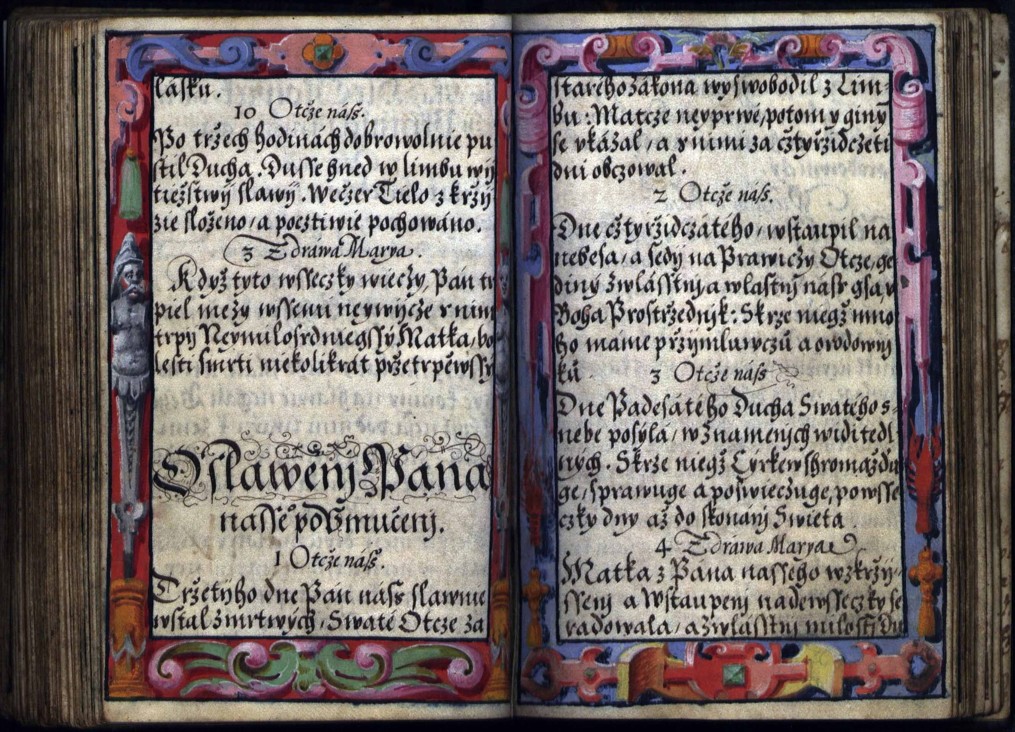 lásku.
10 Otcže náss.
Po trzech hodinách dobrowolnie pu
stil Ducha. Dusse hned w limbu wý
tiežstwý slawý. Wečzer Tielo z krzý
zie složeno, a pocztiwie pochowáno.
3 Zdráwa Marya.
Když tyto wsseczky wieczy, Pan tr
piel mezy wssemi neywýcže s nim
trpý Neymilosrdniegssý Matka, bo
lesti smrti niekolikrát przetrpiewssý
Oslaweny Pána
nasse° po Vmučenj.
1 Otcže náss.
Trzetýho dne Pán náss slawnie
wstal zmrtwých, Swaté Otcze za
starého zákona wyswobodil z Lim-
bu: Matcze neyprwé, potom y giný
se vkázal, a s nimi za cžtyrzidczeti
dni obczowal.
2 Otcže náss.
Dne cžtyrzidczátého, wstaupil na
nebesa, a sedý na Prawiczy Otcze, ge
diný zwlásstnj a wlastný náss gsa v
Boha Prostrzednjk: Skrze niegž mno
ho máme przýmluwczů a orodowný
ků
3 Otcže náss
Dne Padesátého Ducha Swatého s-
nebe posýlá, w znamených widitedl-
ných. Skrze niegž Cýrkew shromažďu
ge, sprawuge a poswieczuge, po wsse
czky dny až do skonánj Swieta.
4 Zdráwa Marya
Matka z Pána nassého wzkrzý-
ssenj a Wstaupenj nadewsseczky se
radowala, a zwlásstnj milosti Du